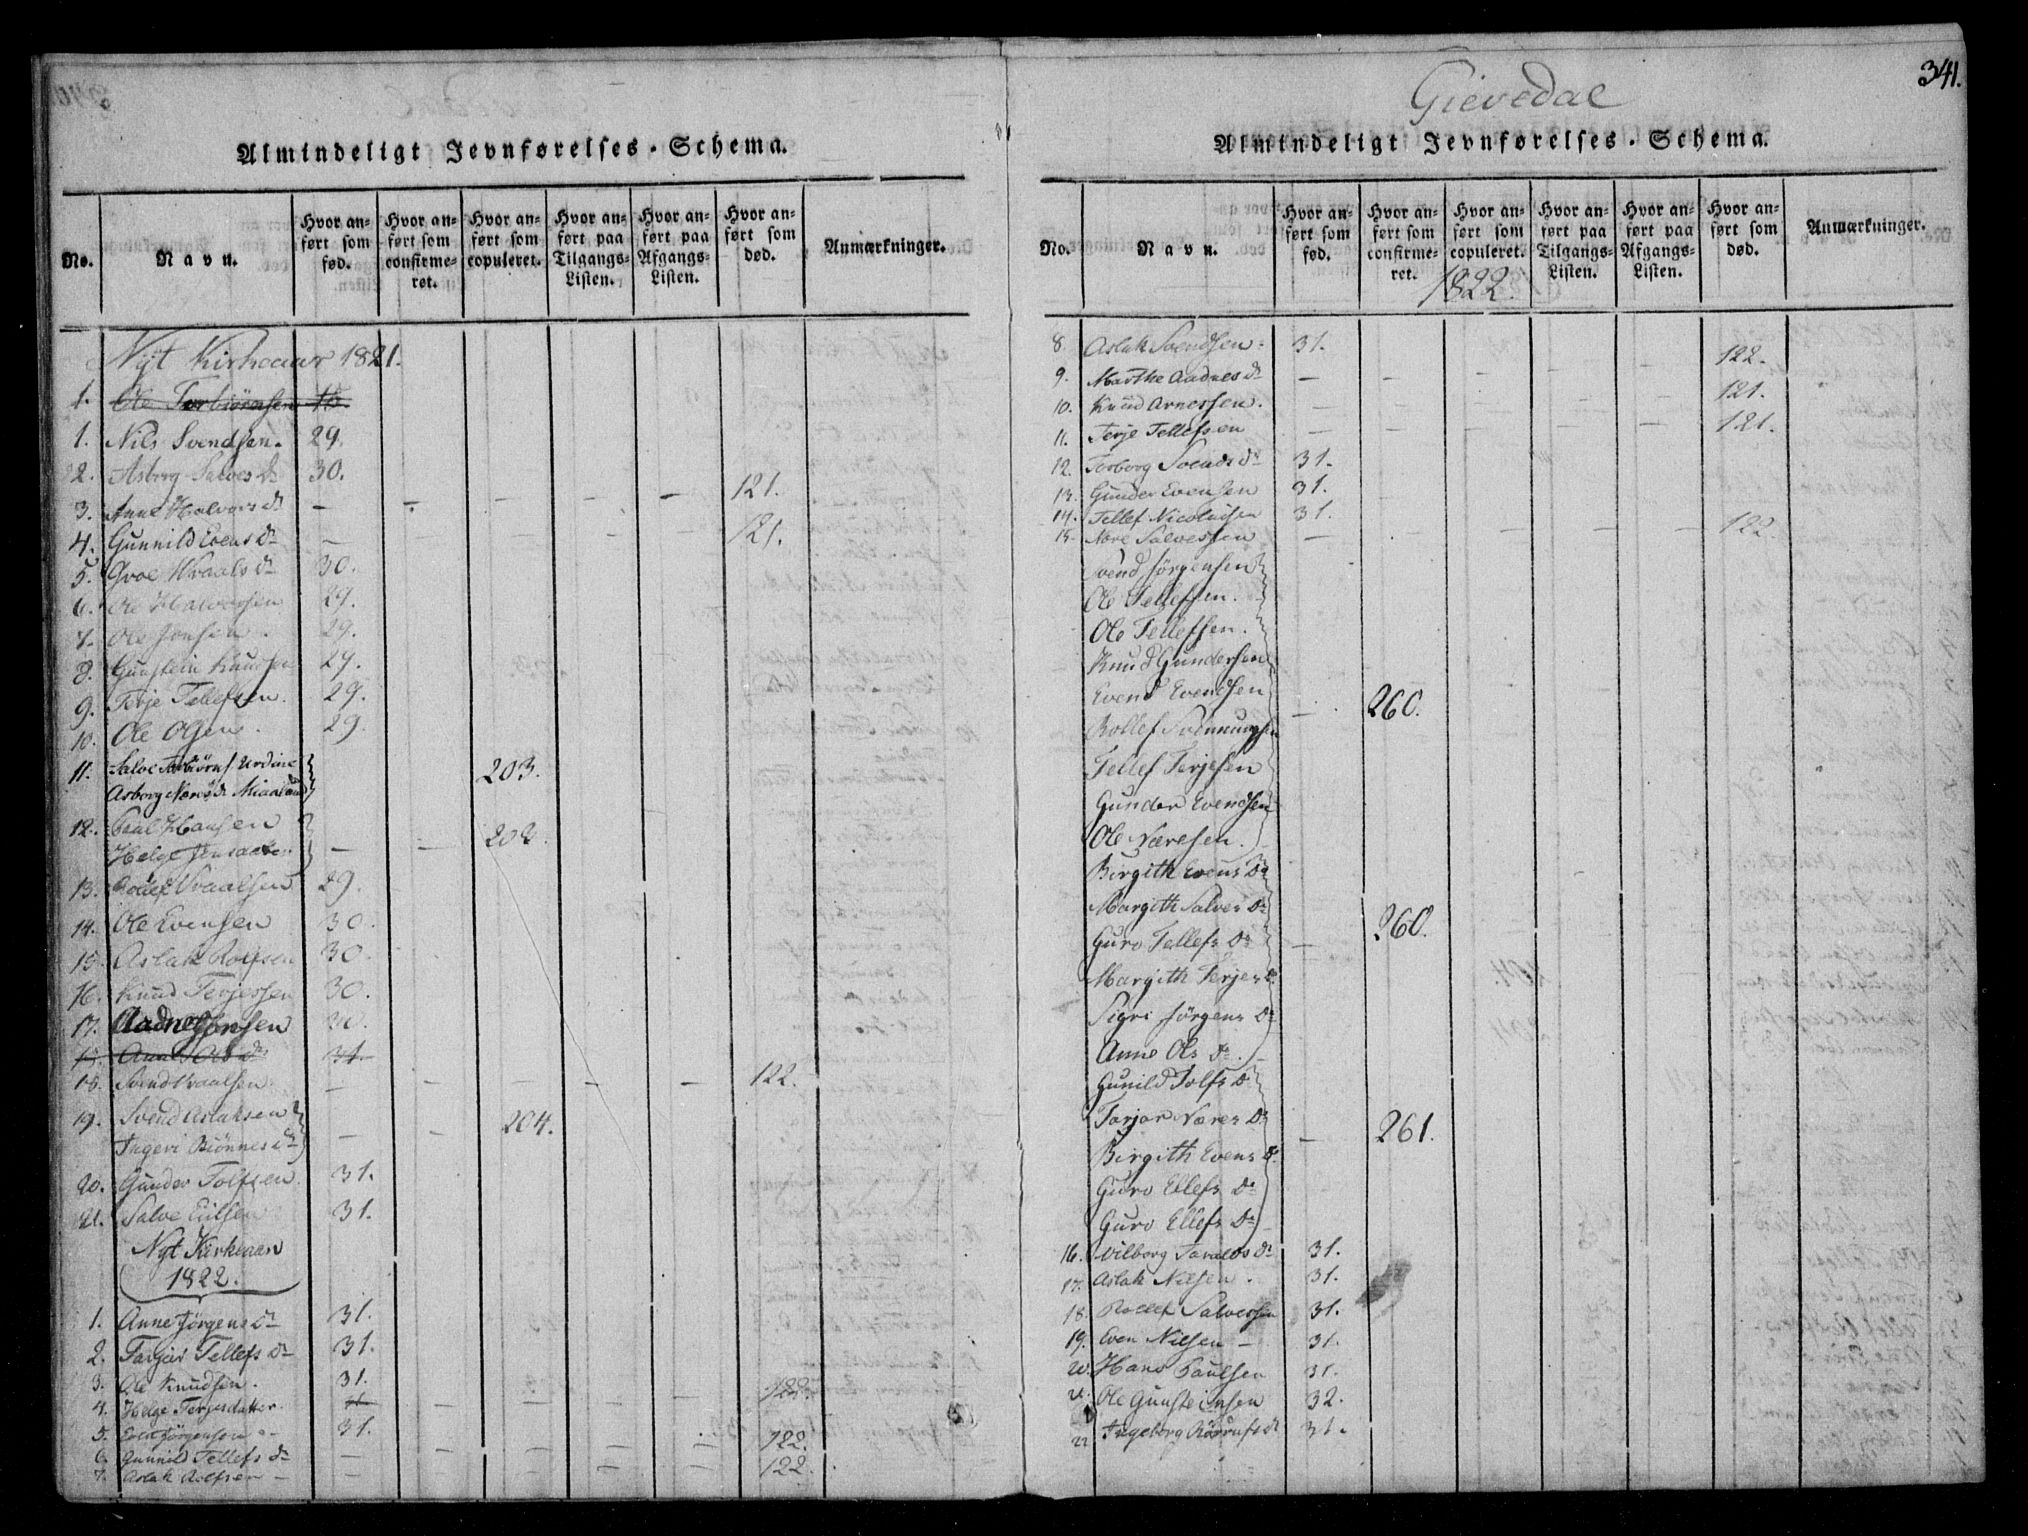 Almindeligt Jevnførelses-Schema.
No. Navn. Hvor anført som fød. Hvor anført som confirmeret. Hvor anført som copuleret. Hvor anført paa Tilgangs-Listen. Hvor anført paa Afgangs-Listen. Hvor anført som død. Anmærkninger.
Nyt Kirkeaar 1821.
1. Ole Torbiörnsen
1. Nils Svendsen. 29.
2. Asborg Salves Dr 30.
3. Anne Halvors dr - - - - - 121.
4. Gunnild Evens Dr - 121.
5. Groe Wraals Dr 30.
6. Ole Halvorsen 29.
7. Ole Jonsen. 29.
8. Gunstein Knudsen 29.
9. Terje Tellefsen. 29.
10. Ole Olsen. 29.
11. Salve Urdine
Asborg 203.
12. Paul Hansen
Helge - - 203.
13. Rollef Vraalsen 29.
14. Ole Evensen 30.
15. Aslak Rolfsen 30.
16. Knud Terjessen 30.
17. Aadne Jonsen 30.
18. Anne Ols dr 31.
18. Svend Vraalsen. - - - - 122.
19. Svend Aslaksen
Ingeri Biönnes dr - - 204.
20. Gunder Tolfsen. 31.
21. Salve 31.
Nyt Kirkeaar
1822.
1. Anne Jörgens Dr 31.
2. Tarjer Tellefs Dr 31.
3. Ole Knudsen. 31.
4. Helge Terjesdatter. - - - - 122.
5. Jörgensen 31.
6. Gunnild Tellefs Dr - - - - - 122.
7. Aslak Rolfsen - - - - - 122.
341.
Gievedal
Almindeligt Jevnførelses-Schema.
No. Navn. Hvor anført som fød. Hvor anført som confirmeret. Hvor anført som copuleret. Hvor anført paa Tilgangs-Listen. Hvor anført paa Afgangs-Listen. Hvor anført som død. Anmærkninger.
1822.
8. Aslak Svendsen. 31.
9. Marthe Aadnes dr - - - - - 122.
10. Knud Arnessen. - - - - - 121.
11. Terje Tellefsen - - - - - 121.
12. Torborg Svends dr 31.
13. Gunder Evensen 31.
14. Tellef Nicolaisen 31.
15. Nære Salvessen - - - - 122.
Svend Jörgensen
Ole Tellefsen.
Ole Tellefsen.
Knud Gundersen
Evend Evendsen - 260.
Rollef Svennungsen
Tellef Terjesen
Gunder Evendsen
Ole Næresen.
Birgith Evens Dr
Margith Salves Dr
Guro Tellefs Dr - 260.
Margith Terjes Dr
Sigri Jörgens Dr
Anne Ols Dr.
Gunild Tolfs Dr
Tarjar Næres Dr - 261.
Birgith Evens Dr
Guro Ellefs Dr
Guro Ellefs Dr
16. Vilborg Taralds Dr 31.
17. Aslak Nilsen. 31.
18. Rollef Salvessen 31.
19. Even Nilsen - 31.
20. Hans Paulsen 31.
21. Ole Gunsteinsen 32.
22 Ingeborg 31.